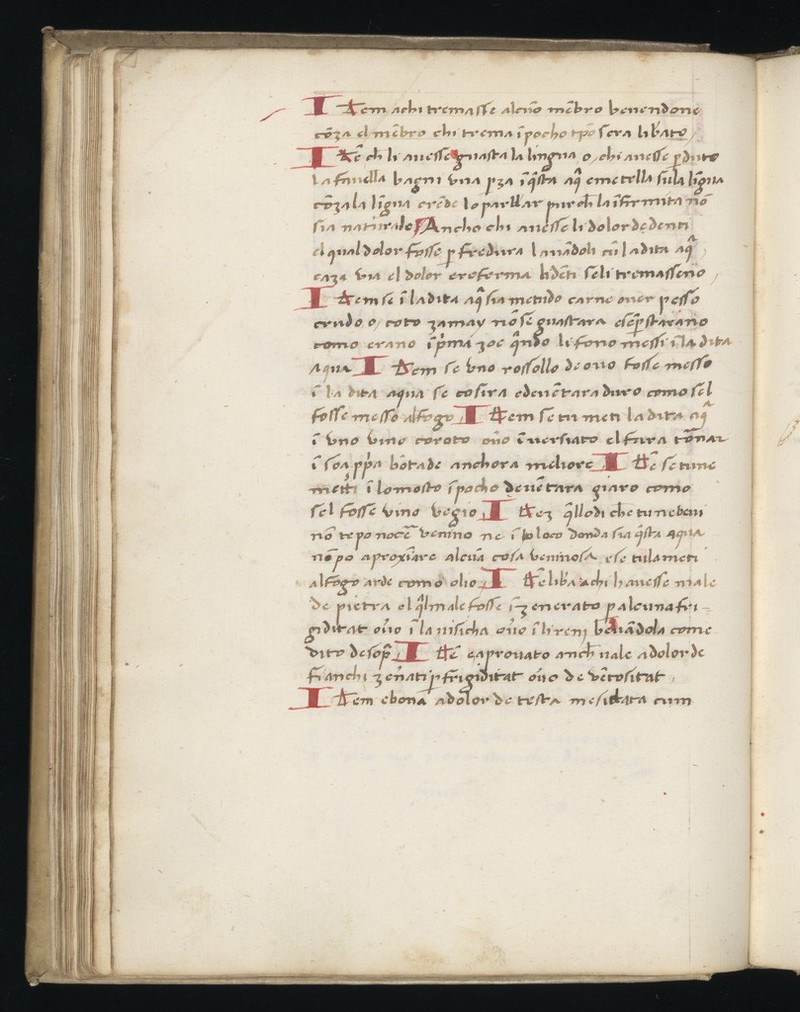 Item achi tremasse alcūo mēbro bevendone
cōza el mēbro chi trema ī pocho tp̄o sera lib̄ato
Itē ch̄ li avesse guasta la lingua o chi avesse p̱duto
la favella bagni una pza ī q̄sta aq̄ e metella su la līgua
cōza la līgua e rēde lo parllar pur ch̄ la īfirmita nō
sia naturale Ancho chi avesse li dolor de denti
el qual dolor fosse p̱ fredura lavādoli cū la dita aq̄
caza via el dolor e referma li dēti se li tremasseno
Item se ī la dita aq̄ sia metudo carne over pesso
crudo o coto zamay nō se guastara e sēp̱ starāno
como erano ī p̄ma zoe q̄ndo li fono messi ī la dita
aqua Item se uno rossollo de ovo fosse messo
ī la dita aqua se cosira e devētara duro como sel
fosse messo al fogo Item se tu meti la dita aq̄
ī uno vino coroto ovo īversiato el fara tōnar
ī soa pp̄a bōtade anchora meliore Itē se tu ne
metti ī lo mosto ī pocho devētara giaro como
sel fosse vino vegio Itez q̄llo di che tu ne bevi
nō te po nocē venino ne ī lo loco donda sia q̄sta aqua
nō po aproxīare alcūa cosa veninosa e se tu la meti
al fogo arde como olio Itē lib̄a achi havesse male
de pietra el q̄l male fosse īzenerato p̱ alcuna fri=
giditat ov̄o ī la visicha ov̄o ī li reni bevādola come
dito de sop̄ Itē e aprovato anch̄ vale a dolor de
fianchi zenati p̱ frigiditat ov̄o de vētositat
Item e bona a dolor de testa mesidata cum